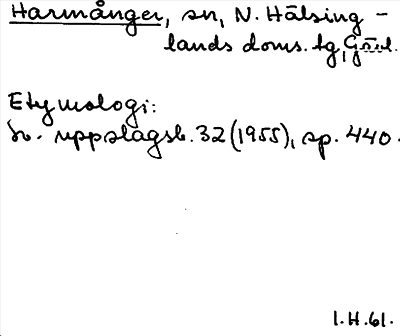 Harmånger, sn, N. Hälsing-
lands doms. tg, Gävl.
Etymologi:
Sv. uppslagsb. 32 (1955), sp. 440.
I.H.61.